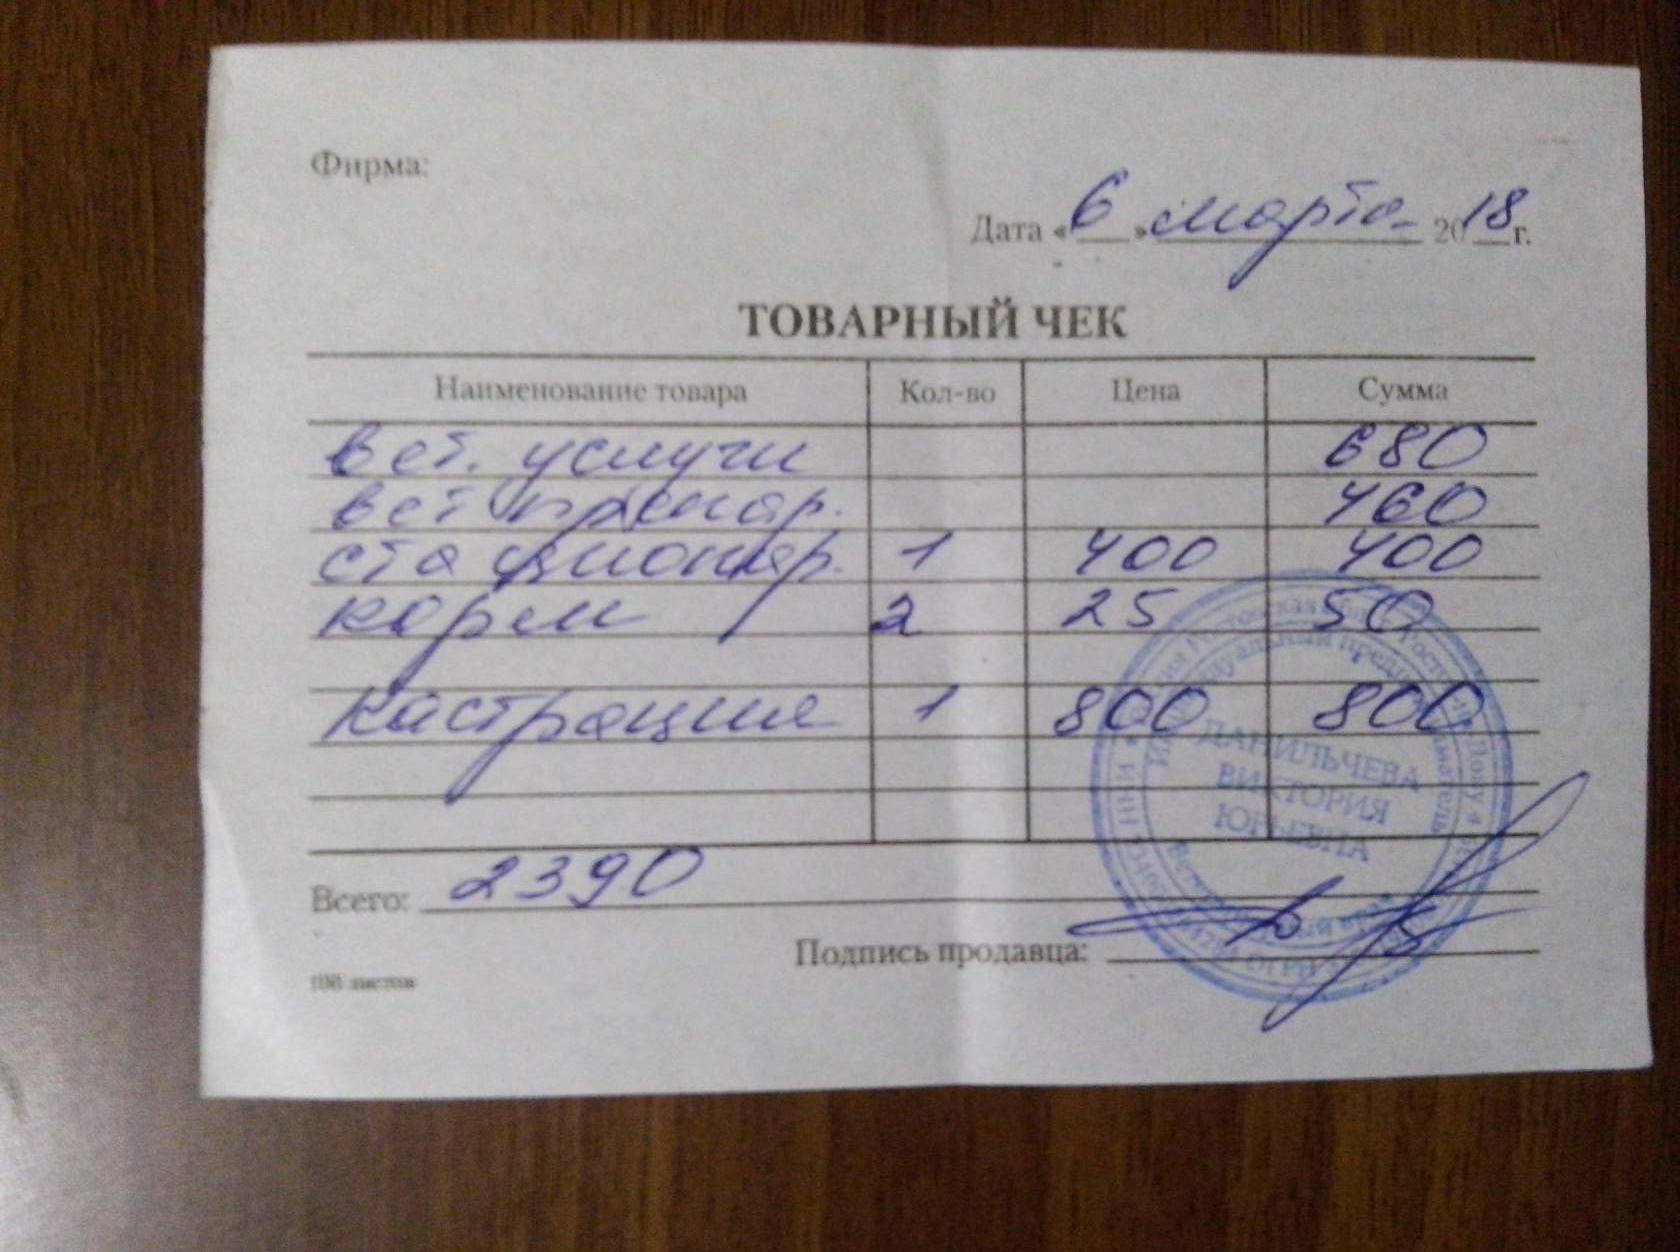 Фирма:
Дата «6» марта 2018 г.
ТОВАРНЫЙ ЧЕК
Наименование товара Кол-во Цена Сумма
вет. услуги 680
вет препар. 460
стационар. 1 400 400
корм 2 25 50
кастрация 1 800 800
Всего: 2390
Подпись продавца:
100 листов
Индивидуальный предприниматель
ДАНИЛЬЧЕВА
ВИКТОРИЯ
ЮРЬЕВНА
Ветеринарный врач